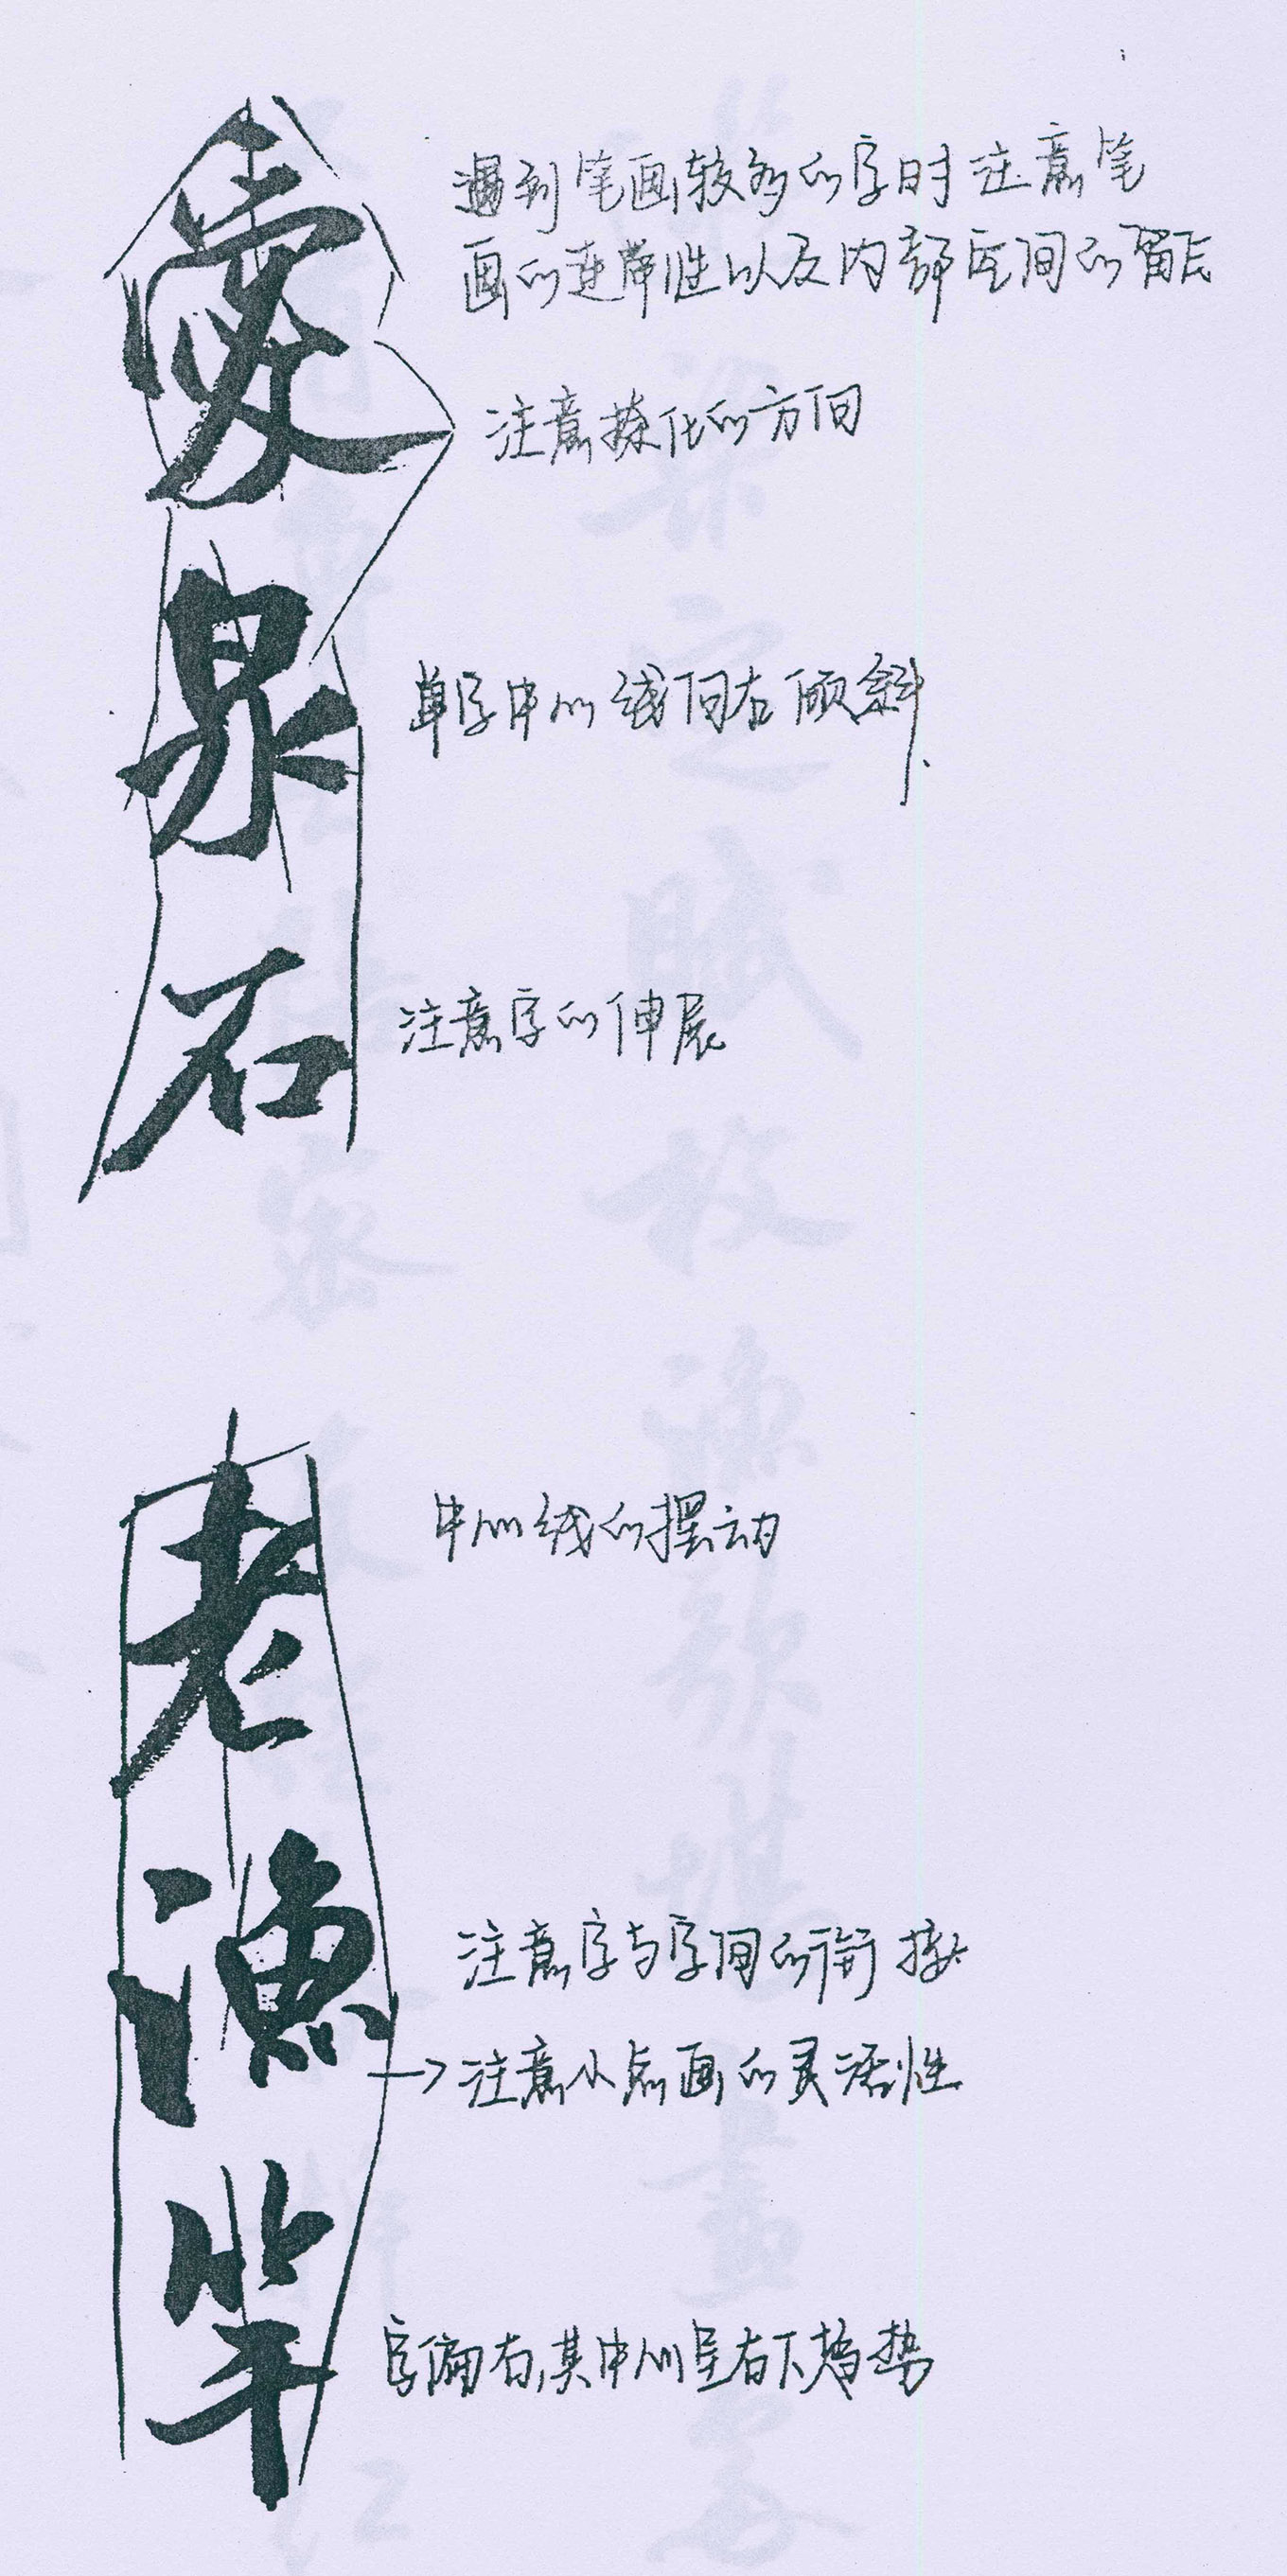 愛
泉
石
遇到笔画较多的字时注意笔
画的连带性以及内部空间的留白
注意捺化的方向
单字中心线向右倾斜、
注意字的伸展
老
漁
竿
中心线的摆动
注意字与字间的衔接
→注意小点画的灵活性
字偏右,其中心呈右下趋势